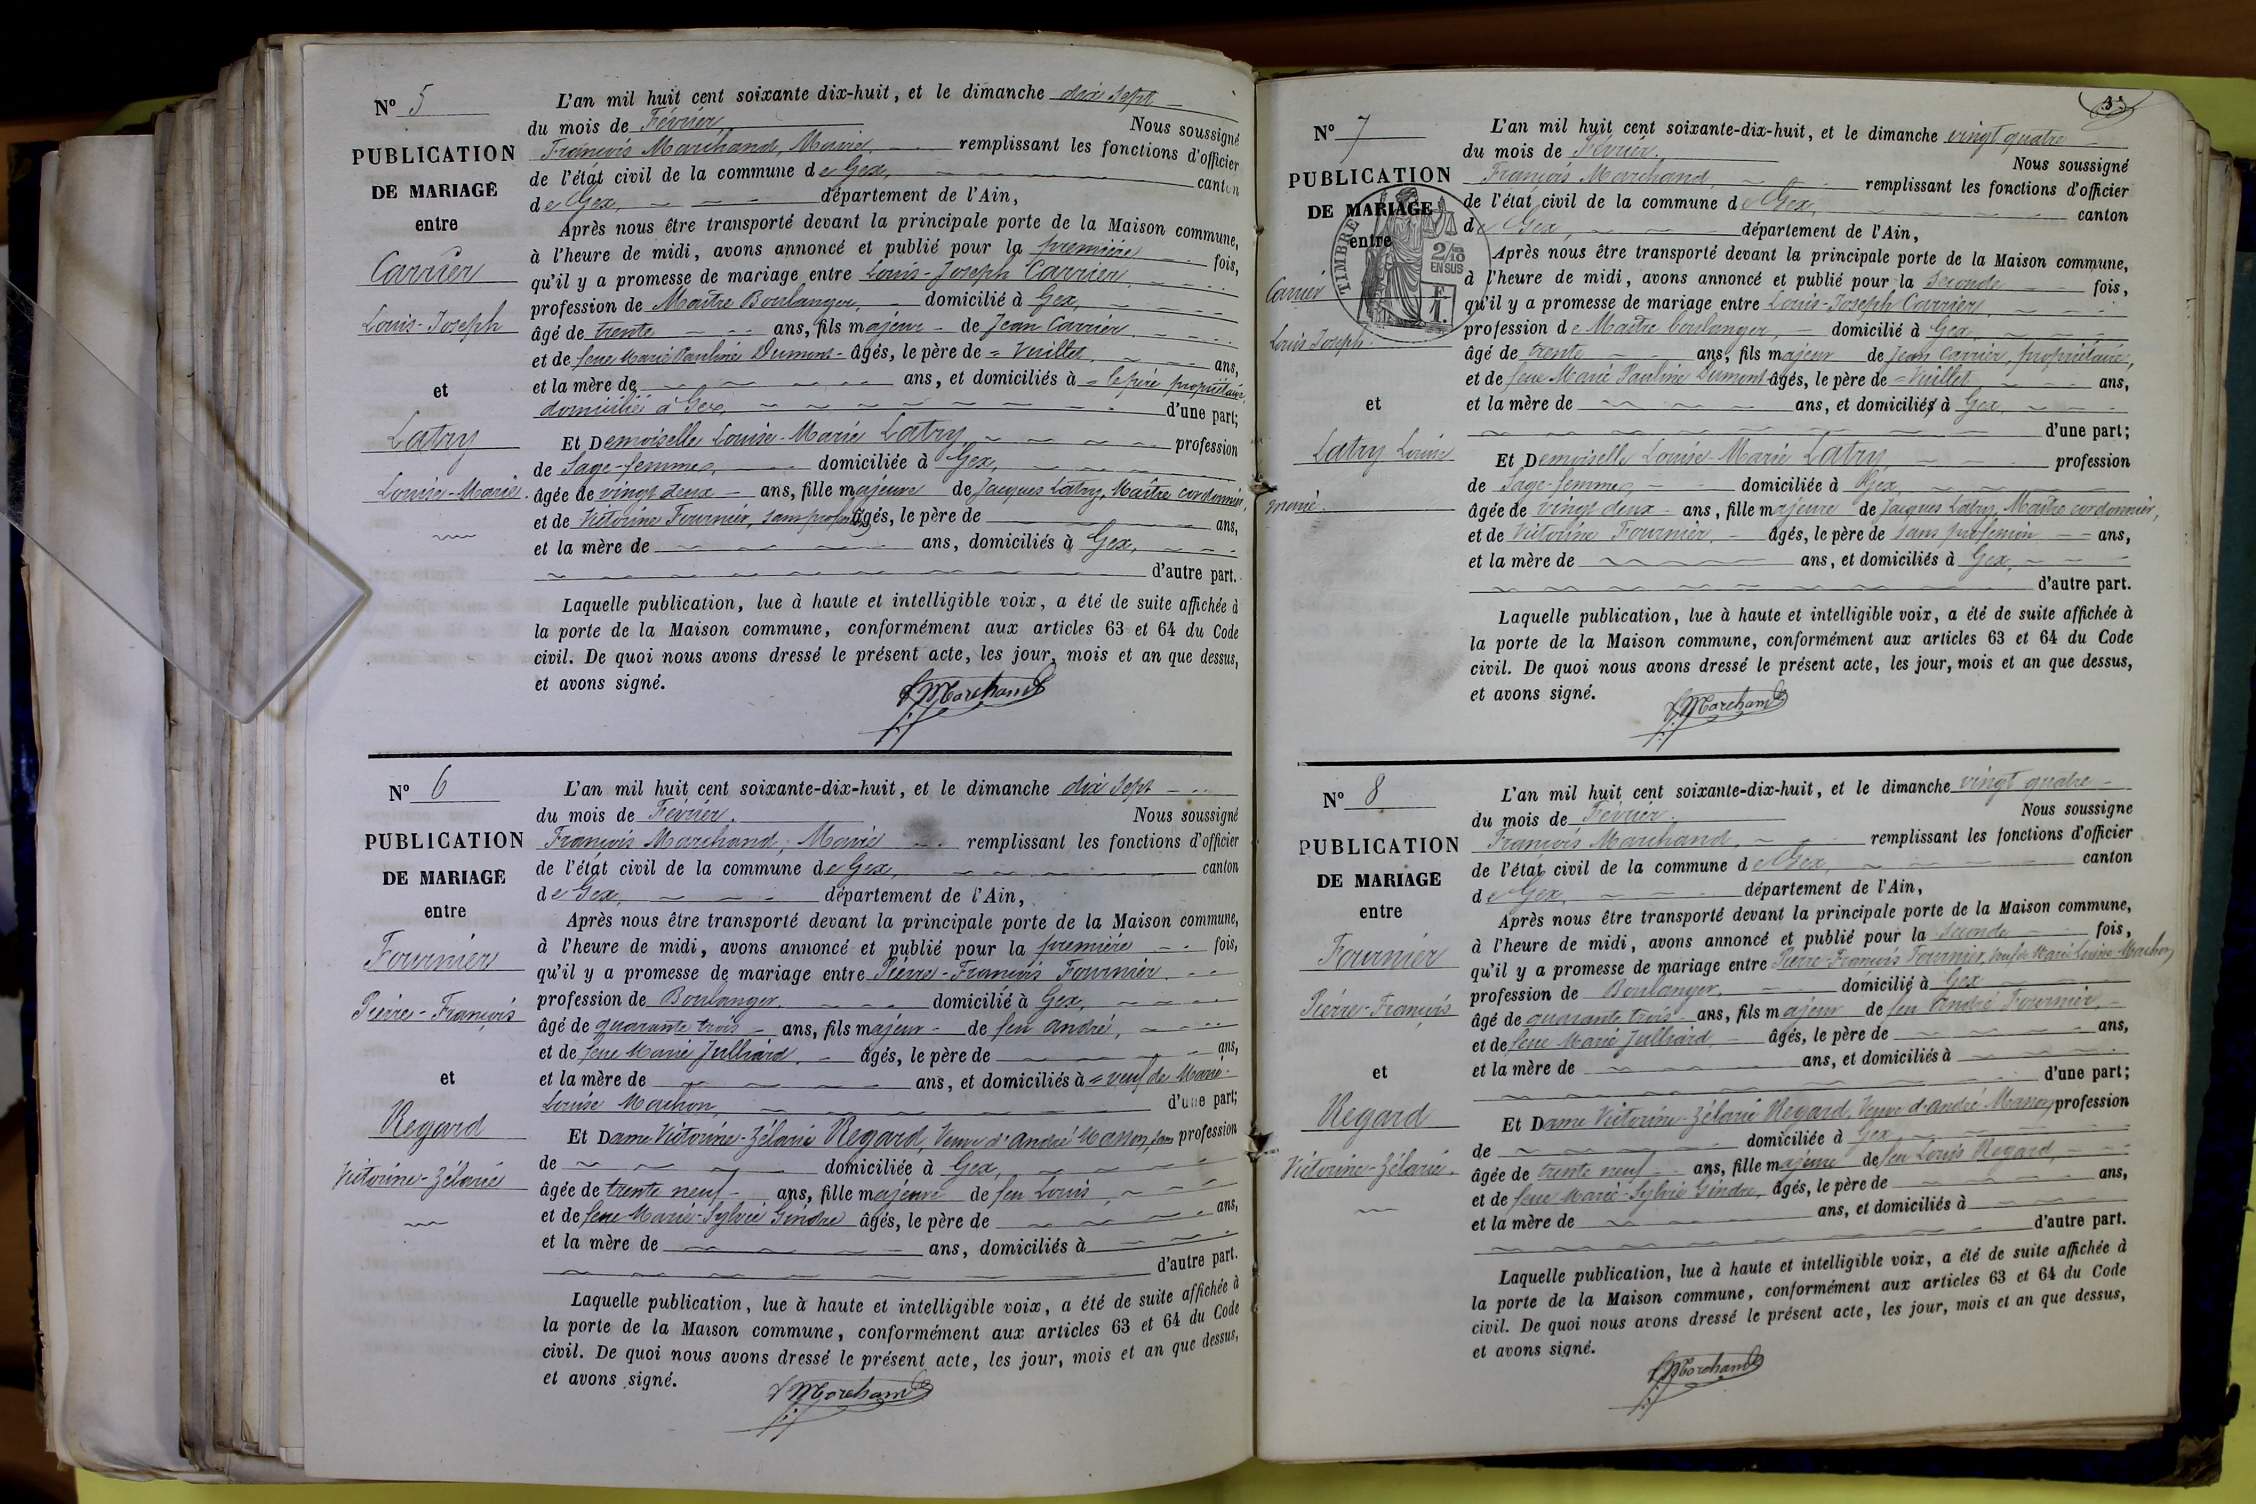 N° 5
PUBLICATION
DE MARIAGE
entre
Carrier
Louis-Joseph
et
Latry
Louise-Marie.
L'an mil huit cent soixante dix-huit, et le dimanche dix sept
du mois de Février, Nous soussigné
François Marchand, Maire, remplissant les fonctions d'officier
de l'état civil de la commune de Gex, canton
de Gex, département de l'Ain,
Après nous être transporté devant la principale porte de la Maison commune,
à l'heure de midi, avons annoncé et publié pour la première fois,
qu'il y a promesse de mariage entre Louis-Joseph Carrier,
profession de Maître Boulanger, domicilié à Gex,
âgé de trente ans, fils majeur de Jean Carrier
et de feue Marie Pauline Dumont - âgés, le père de = Vuillet ans,
et la mère de ans, et domiciliés à = le père propriétaire,
domicilié à Gex, d'une part;
Et Demoiselle Louise-Marie Latry, profession
de Sage-femme, domiciliée à Gex,
âgée de vingt deux ans, fille majeure de Jacques Latry, Maître cordonnier,
et de Victorine Fournier, sans profession âgés, le père de ans,
et la mère de ans, domiciliés à Gex,
d'autre part.
Laquelle publication, lue à haute et intelligible voix, a été de suite affichée à
la porte de la Maison commune, conformément aux articles 63 et 64 du Code
civil. De quoi nous avons dressé le présent acte, les jour, mois et an que dessus,
et avons signé.
f Marchand
N° 6
PUBLICATION
DE MARIAGE
entre
Fournier
Pierre-François
et
Regard
Victorine-Zélarie
L'an mil huit cent soixante-dix-huit, et le dimanche dix sept
du mois de Février. Nous soussigné
François Marchand, Maire remplissant les fonctions d'officier
de l'état civil de la commune de Gex, canton
de Gex, département de l'Ain,
Après nous être transporté devant la principale porte de la Maison commune,
à l'heure de midi, avons annoncé et publié pour la première fois,
qu'il y a promesse de mariage entre Pierre-François Fournier.
profession de Boulanger, domicilié à Gex,
âgé de quarante trois ans, fils majeur de feu André,
et de feue Marie Julliard, âgés, le père de ans,
et la mère de ans, et domiciliés à = veuf de Marie
Louise Machon, d'une part;
Et Dame Victorine-Zélarie Regard, Veuve d'André Manon, sans profession
de domiciliée à Gex,
âgée de trente neuf ans, fille majeure de feu Louis
et de feue Marie-Sylvie Gindre âgés, le père de ans,
et la mère de ans, domiciliés à
d'autre part.
Laquelle publication, lue à haute et intelligible voix, a été de suite affichée à
la porte de la Maison commune, conformément aux articles 63 et 64 du Code
civil. De quoi nous avons dressé le présent acte, les jour, mois et an que dessus,
et avons signé.
f Marchand
3
N° 7
PUBLICATION
DE MARIAGE
entre
TIMBRE
2/10
EN SUS
F
1.
Carrier
Louis Joseph.
et
Latry Louise
marie.
L'an mil huit cent soixante-dix-huit, et le dimanche vingt quatre
du mois de Février. Nous soussigné
François Marchand, remplissant les fonctions d'officier
de l'état civil de la commune de Gex, canton
de Gex, département de l'Ain,
Après nous être transporté devant la principale porte de la Maison commune,
à l'heure de midi, avons annoncé et publié pour la seconde fois,
qu'il y a promesse de mariage entre Louis-Joseph Carrier,
profession de Maître boulanger, domicilié à Gex,
âgé de trente ans, fils majeur de Jean Carrier, propriétaire,
et de feue Marie Pauline Dumont âgés, le père de = Vuillet ans,
et la mère de ans, et domiciliés à Gex,
d'une part;
Et Demoiselle Louise-Marie Latry profession
de Sage-femme, domiciliée à Gex,
âgée de vingt deux ans, fille majeure de Jacques Latry, Maître cordonnier,
et de Victorine Fournier, âgés, le père de sans profession ans,
et la mère de ans, et domiciliés à Gex,
d'autre part.
Laquelle publication, lue à haute et intelligible voix, a été de suite affichée à
la porte de la Maison commune, conformément aux articles 63 et 64 du Code
civil. De quoi nous avons dressé le présent acte, les jour, mois et an que dessus,
et avons signé.
f Marchand
N° 8
PUBLICATION
DE MARIAGE
entre
Fournier
Pierre-François
et
Regard
Victorine-Zélarie.
L'an mil huit cent soixante-dix-huit, et le dimanche vingt quatre
du mois de Février. Nous soussigné
François Marchand, remplissant les fonctions d'officier
de l'état civil de la commune de Gex, canton
de Gex, département de l'Ain,
Après nous être transporté devant la principale porte de la Maison commune,
à l'heure de midi, avons annoncé et publié pour la seconde fois,
qu'il y a promesse de mariage entre Pierre-François Fournier, veuf de Marie Louise Machon,
profession de Boulanger, domicilié à Gex
âgé de quarante trois ans, fils majeur de feu André Fournier,
et de feue Marie Julliard, âgés, le père de ans,
et la mère de ans, et domiciliés à
d'une part;
Et Dame Victorine-Zélarie Regard, Veuve d'André Manon, profession
de domiciliée à Gex
âgée de trente neuf ans, fille majeure de feu Louis Regard,
et de feue Marie-Sylvie Gindre, âgés, le père de ans,
et la mère de ans, et domiciliés à
d'autre part.
Laquelle publication, lue à haute et intelligible voix, a été de suite affichée à
la porte de la Maison commune, conformément aux articles 63 et 64 du Code
civil. De quoi nous avons dressé le présent acte, les jour, mois et an que dessus,
et avons signé.
f Marchand